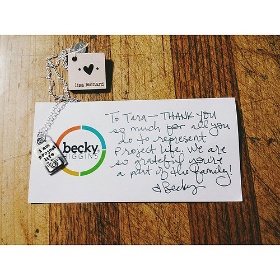 lisa leonard
becky
HIGGINS
To Tara — THANK YOU
so much for all you
do to represent
Project Life. We are
so grateful you're
a part of the family!
Becky
i am
project
life